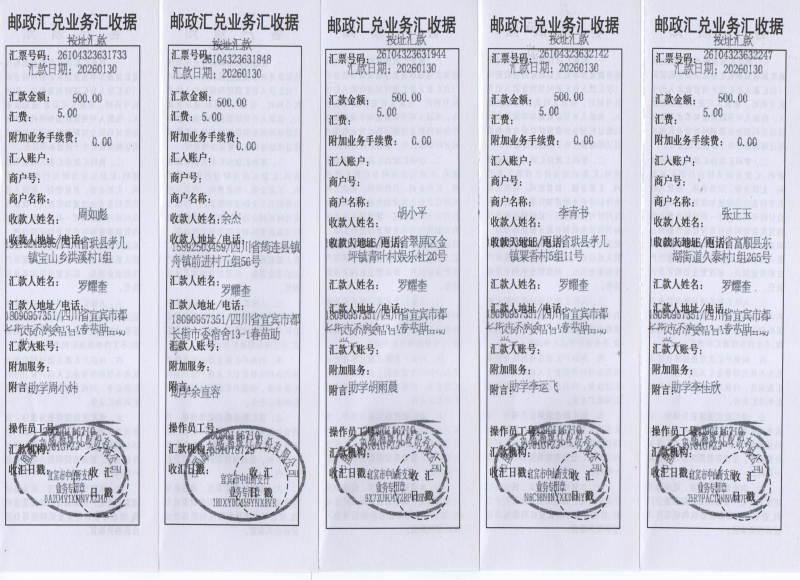 邮政汇兑业务汇收据
按址汇款
汇票号码：26104323631733
汇款日期：20260130
汇款金额：500.00
汇费：5.00
附加业务手续费：0.00
汇入账户：
商户号：
商户名称：
收款人姓名：周如彪
收款人地址/电话：
/四川省珙县孝儿
镇宝山乡洪溪村1组
汇款人姓名：罗耀奎
汇款人地址/电话：
18090957351/四川省宜宾市都
汇款人账号：
附加服务：
附言：助学周小炜
操作员工号：
汇款机构：
收汇日戳：
收汇
日戳
宜宾市中山街支行
业务专用章
邮政汇兑业务汇收据
按址汇款
汇票号码：26104323631848
汇款日期：20260130
汇款金额：500.00
汇费：5.00
附加业务手续费：0.00
汇入账户：
商户号：
商户名称：
收款人姓名：余杰
收款人地址/电话：
/四川省筠连县镇
舟镇前进村江组56号
汇款人姓名：罗耀奎
汇款人地址/电话：
18090957351/四川省宜宾市都
长街市委宿舍13-1春苗助
汇款人账号：
附加服务：
附言：助学余直容
操作员工号：
汇款机构：
收汇日戳：
收汇
日戳
宜宾市中山街支行
业务专用章
邮政汇兑业务汇收据
按址汇款
汇票号码：26104323631944
汇款日期：20260130
汇款金额：500.00
汇费：5.00
附加业务手续费：0.00
汇入账户：
商户号：
商户名称：
收款人姓名：胡小平
收款人地址/电话：
省翠屏区金
坪镇青叶村娱乐社20号
汇款人姓名：罗耀奎
汇款人地址/电话：
18090957351/四川省宜宾市都
汇款人账号：
附加服务：
附言：助学胡雨晨
操作员工号：
汇款机构：
收汇日戳：
收汇
日戳
宜宾市中山街支行
业务专用章
邮政汇兑业务汇收据
按址汇款
汇票号码：26104323632142
汇款日期：20260130
汇款金额：500.00
汇费：5.00
附加业务手续费：0.00
汇入账户：
商户号：
商户名称：
收款人姓名：李育书
收款人地址/电话：
省珙县孝儿
镇粟香村5组11号
汇款人姓名：罗耀奎
汇款人地址/电话：
18090957351/四川省宜宾市都
汇款人账号：
附加服务：
附言：助学李运飞
操作员工号：
汇款机构：
收汇日戳：
收汇
日戳
宜宾市中山街支行
业务专用章
邮政汇兑业务汇收据
按址汇款
汇票号码：26104323632247
汇款日期：20260130
汇款金额：500.00
汇费：5.00
附加业务手续费：0.00
汇入账户：
商户号：
商户名称：
收款人姓名：张正玉
收款人地址/电话：
省富顺县东
湖街道久泰村1组265号
汇款人姓名：罗耀奎
汇款人地址/电话：
18090957351/四川省宜宾市都
汇款人账号：
附加服务：
附言：助学李佳欣
操作员工号：
汇款机构：
收汇日戳：
收汇
日戳
宜宾市中山街支行
业务专用章